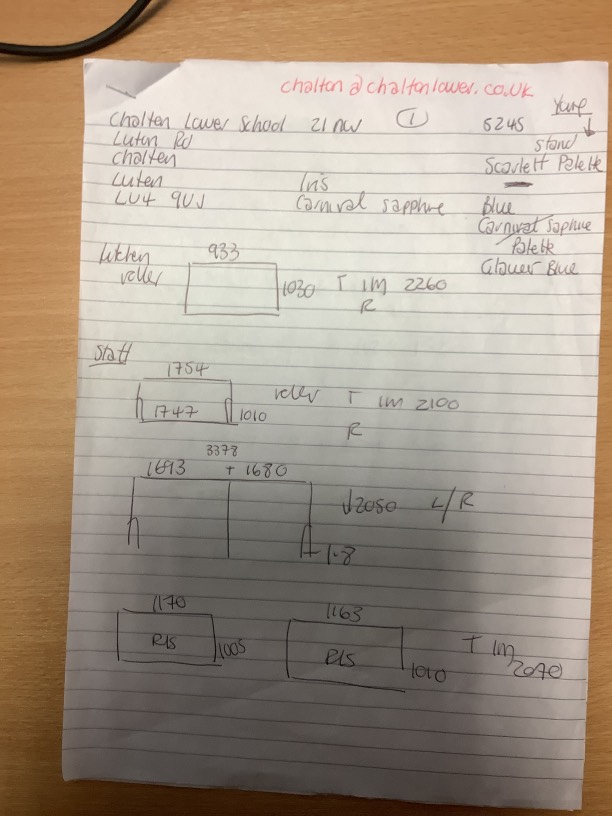 chalton @ chaltonlower.co.uk
Chalten Lower School 21 NW 1 5245
Luton Rd stand
chalten Scarlett Palette
Luten Iris Blue
LU4 9UJ Carnival sapphire Carnival Saphire
Palette
Glower Blue
933
roller 1030 T 1M 2260
R
Staff
1754
1747 1010 roller T 1M 2100
R
3378
1693 + 1680
↓2050 L/R
1.8
1170 1163
R15 1005 R15 1010 T 1M
2090